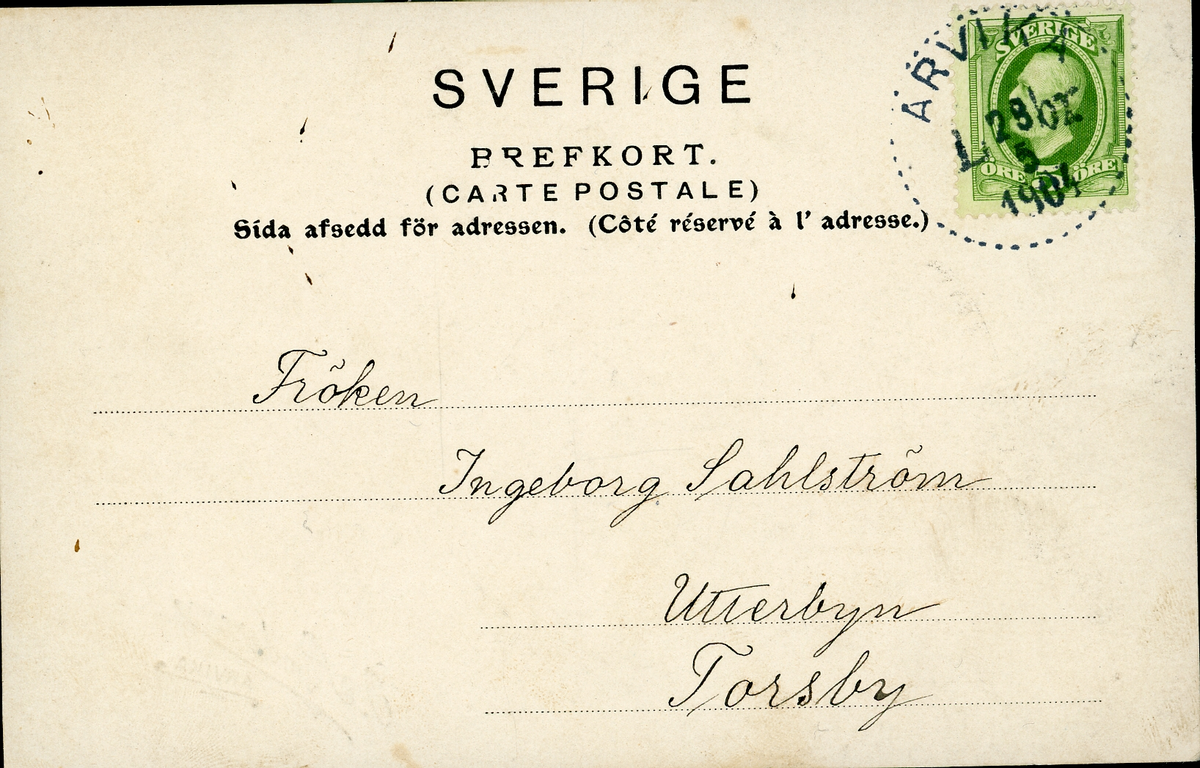 SVERIGE
BREFKORT.
(CARTE POSTALE)
Sida afsedd för adressen. (Côté réservé à l' adresse.)
ARVIKA
SVERIGE
5
1904
ÖRE ÖRE
Fröken
Ingeborg Sahlström
Utterbyn
Torsby